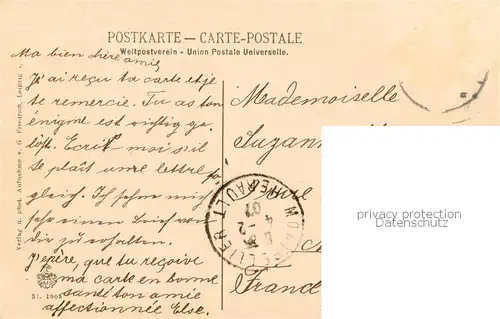 POSTKARTE — CARTE-POSTALE
Weltpostverein - Union Postale Universelle.
Ma bien chère amie,
J'ai reçu ta carte et je
te remercie. Tu as ton
enigmt est richtig ge-
löst. Ecris-moi s'il
te plaît une lettre
gleich. Ich sehne mich
sehr einen Brief von
dir zu erhalten.
J'espère, que tu reçoive
ma carte en bonne
santé ton amie
affectionnée Else.
Mademoiselle
Suzanne
France
MONTPELLIER
HERAULT
4 -2
07
Verlag u. phot. Aufnahme v. G. Friedrich, Leipzig
31. 1905
privacy protection
Datenschutz